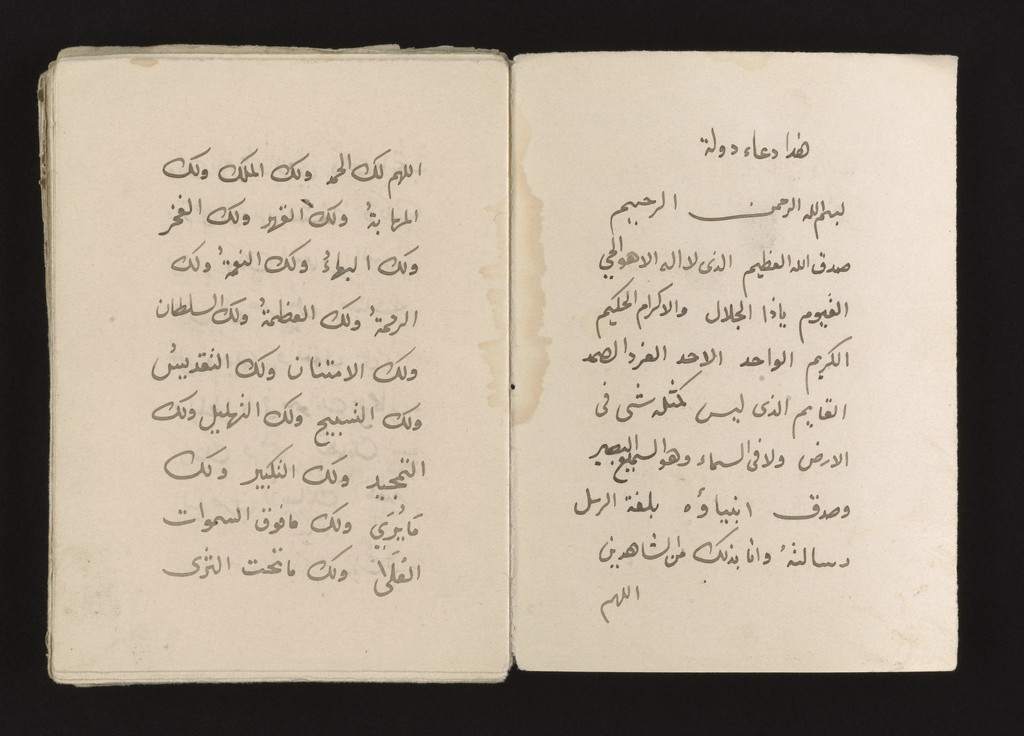 هذا دعاء دولة
بسم الله الرحمن الرحيم
صدق الله العظيم الذى لا اله الا هو الحي
القيوم ياذا الجلال والاكرام الحكيم
الكريم الواحد الاحد الفرد الصمد
القايم الذى ليس كمثله شى فى
الارض ولا فى السماء وهو السميع البصير
وصدق انبياؤه بلغة الرسل
رسالتهٔ وانا بذلك من الشاهدين
اللهم
اللهم لك الحمد ولك الملك ولك
المهابةُ ولك القهر ولك الفخر
ولك البهاءُ ولك النعمةُ ولك
الرحمةُ ولك العظمةُ ولك السلطان
ولك الامتنان ولك التقديسُ
ولك التسبيح ولك التهليل ولك
التمجيد ولك التكبير ولك
مَايُرَي ولك مافوق السموات
العُلَى ولك ماتحت الثرى